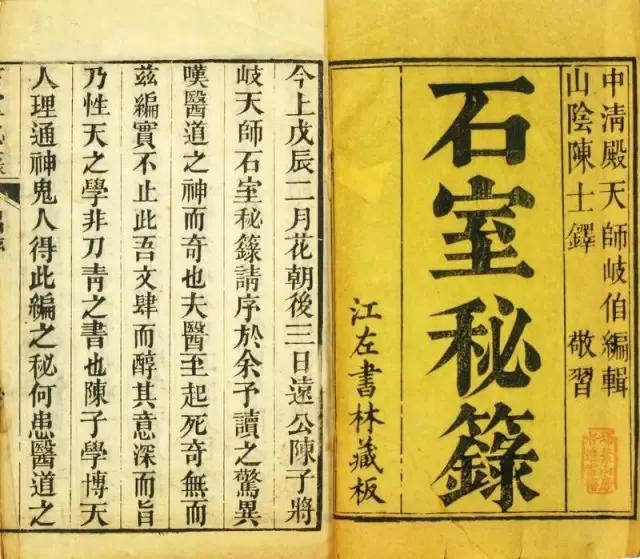 中清殿天師岐伯編輯
山陰陳士鐸 敬習
石室秘籙
江左書林藏板
今上戊辰二月花朝後三日遠公陳子將
岐天師石室秘籙請序於余予讀之驚異
嘆醫道之神而奇也夫醫至起死奇無而
茲編實不止此吾文肆而醇其意深而旨
乃性天之學非刀青之書也陳子學博天
人理通神鬼人得此編之秘何患醫道之